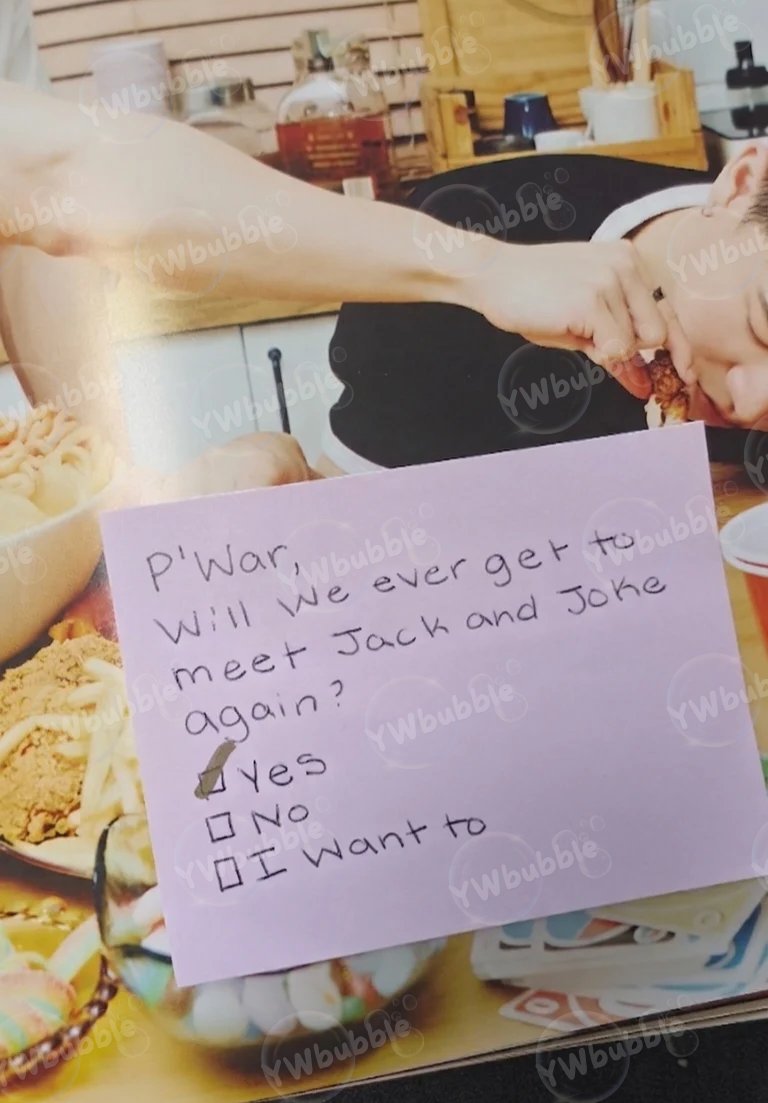 P'War,
Will we ever get to
meet Jack and Joke
again?
Yes
No
I want to
YWbubble